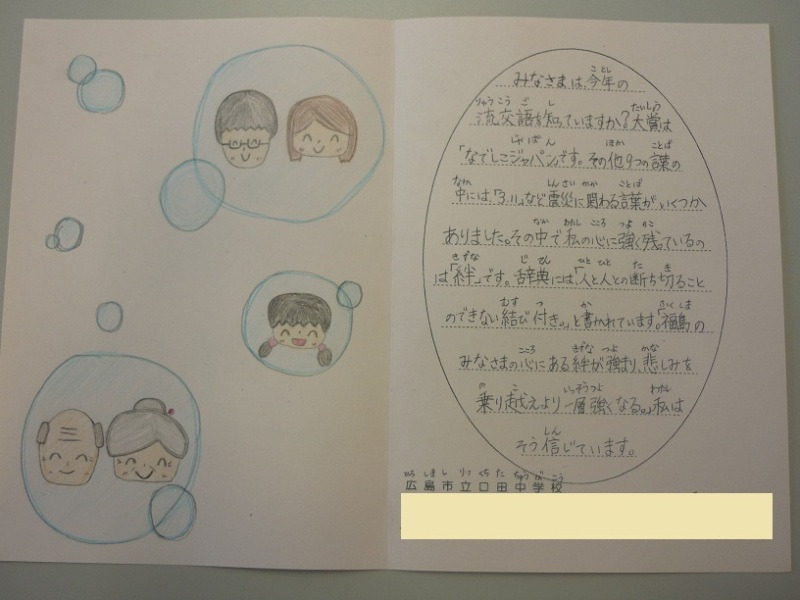 みなさまは、今年の
流行語を知っていますか？大賞は
「なでしこジャパン」です。その他9つの言葉の
中には、「3.11」など震災に関わる言葉が、いくつか
ありました。その中で私の心に強く残っているの
は「絆」です。辞典には、「人と人との断ち切ること
のできない結び付き。」と書かれています。「福島の
みなさまの心にある絆が強まり、悲しみを
乗り越えより一層強くなる。」私は
そう信じています。
広島市立口田中学校